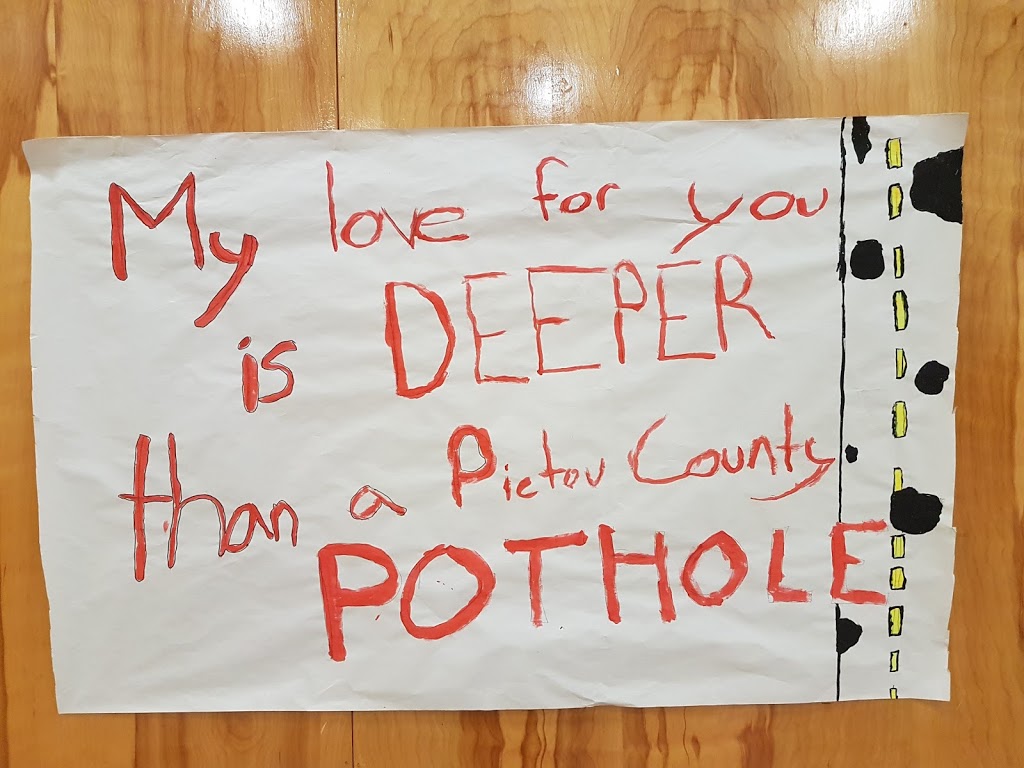 My love for you
is DEEPER
than a Pictou County
POTHOLE